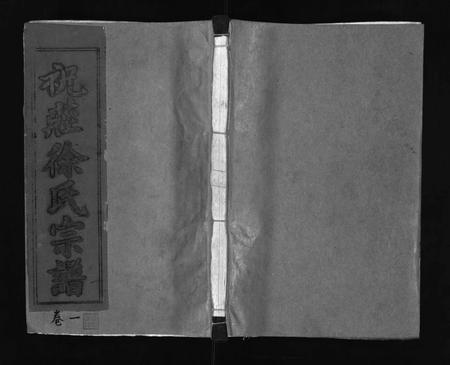 祝莊徐氏宗譜
卷一